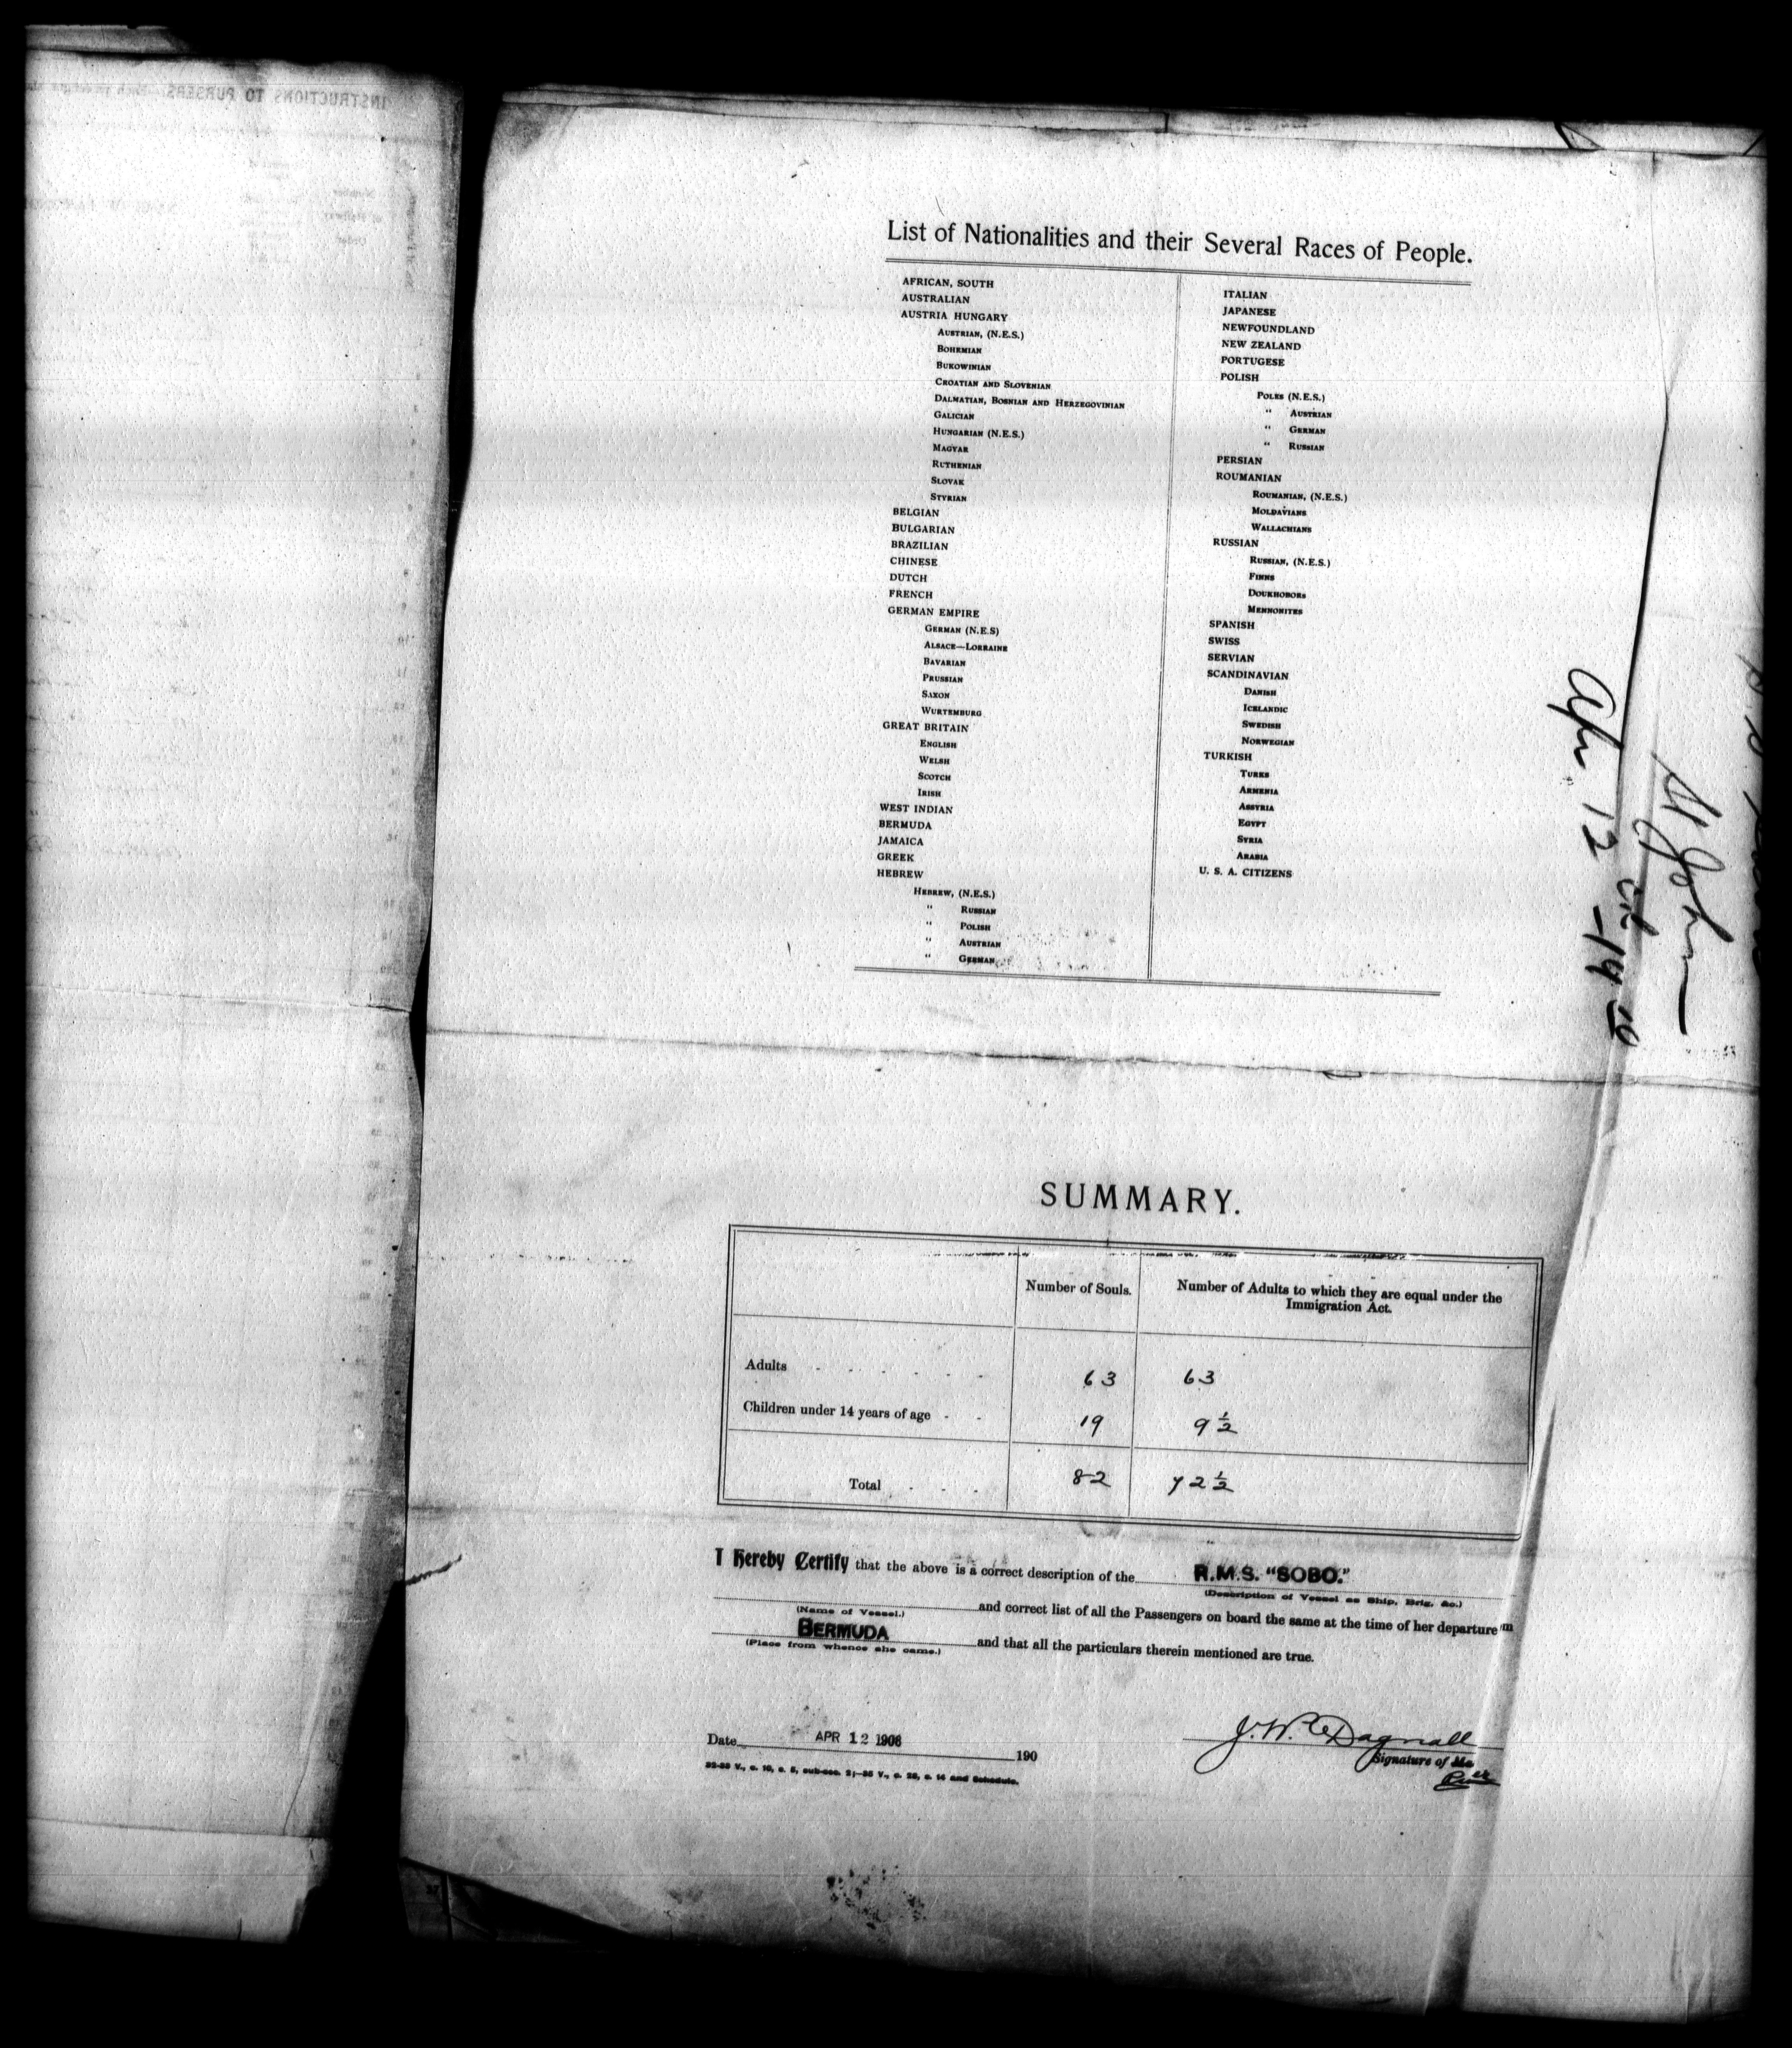 INSTRUCTIONS TO PURSERS.
List of Nationalities and their Several Races of People.
AFRICAN, SOUTH
AUSTRALIAN
AUSTRIA HUNGARY
AUSTRIAN, (N.E.S.)
BOHEMIAN
BUKOWINIAN
CROATIAN AND SLOVENIAN
DALMATIAN, BOSNIAN AND HERZEGOVINIAN
GALICIAN
HUNGARIAN (N.E.S.)
MAGYAR
RUTHENIAN
SLOVAK
STYRIAN
BELGIAN
BULGARIAN
BRAZILIAN
CHINESE
DUTCH
FRENCH
GERMAN EMPIRE
GERMAN (N.E.S)
ALSACE—LORRAINE
BAVARIAN
PRUSSIAN
SAXON
WURTEMBURG
GREAT BRITAIN
ENGLISH
WELSH
SCOTCH
IRISH
WEST INDIAN
BERMUDA
JAMAICA
GREEK
HEBREW
HEBREW, (N.E.S.)
" RUSSIAN
" POLISH
" AUSTRIAN
" GERMAN
ITALIAN
JAPANESE
NEWFOUNDLAND
NEW ZEALAND
PORTUGESE
POLISH
POLES (N.E.S.)
" AUSTRIAN
" GERMAN
" RUSSIAN
PERSIAN
ROUMANIAN
ROUMANIAN, (N.E.S.)
MOLDAVIANS
WALLACHIANS
RUSSIAN
RUSSIAN, (N.E.S.)
FINNS
DOUKHOBORS
MENNONITES
SPANISH
SWISS
SERVIAN
SCANDINAVIAN
DANISH
ICELANDIC
SWEDISH
NORWEGIAN
TURKISH
TURKS
ARMENIA
ASSYRIA
EGYPT
SYRIA
ARABIA
U. S. A. CITIZENS
St John
Apr 12
SUMMARY.
Number of Souls. Number of Adults to which they are equal under the
Immigration Act.
Adults 63 63
Children under 14 years of age 19 9 ½
Total 82 72 ½
I Hereby Certify that the above is a correct description of the R.M.S. "SOBO."
(Description of Vessel as Ship, Brig, &c.)
and correct list of all the Passengers on board the same at the time of her departure
(Name of Vessel.)
BERMUDA and that all the particulars therein mentioned are true.
(Place from whence she came.)
J. W. Dagnall
Date APR 12 1906 190
Signature of
32-33 V., c. 10, s. 5, sub-sec. 2;—35 V., c. 28, s. 14 and Schedule.